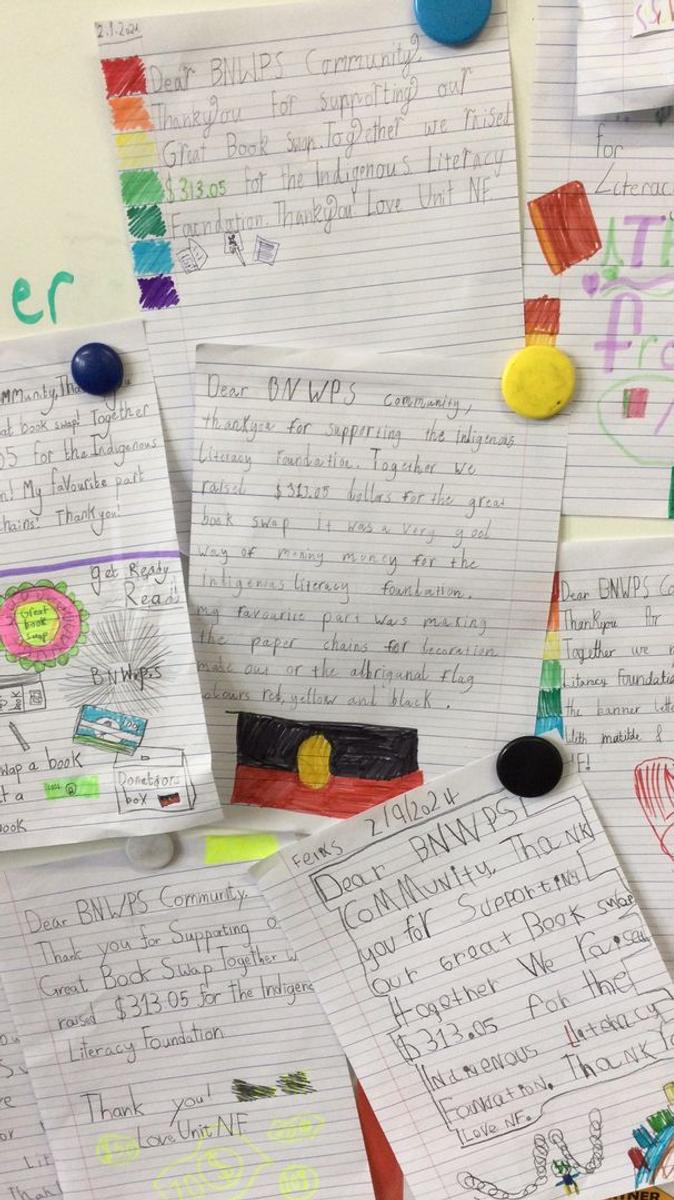 2.9.2024
Dear BNWPS Community,
Thankyou for supporting our
Great Book swap. Together we raised
$313.05 for the Indigenous Literacy
Foundation. Thankyou! Love Unit NF.
for
Literac
er
mmunity, Tha
at book swap! Together
05 for the Indigenous
n! My favourite part
chains! Thankyou!
get Ready
Read!
Great
book
swap
BNWPS
100
wap a book
t a
Donations
box
book
Dear BNWPS community,
thankyou for supporting the indigenous
Literacy Foundation. Together We
raised $313.05 dollars for the great
book swap it was a very good
way of meniny money for the
indigenias literacy foundation.
my favourite part was making
the paper chains for decoration
made out or the albriganal flag
colours red, yellow and black.
Dear BNWPS Co
Thankyou for
Together we r
Literacy Foundatio
the banner lette
With matilda &
NF!
Dear BNWPS Community,
Thank you for Supporting o
Great Book Swap Together w
raised $313.05 for the Indigeno
Literacy Foundation
Thank you!
Love Unit NF
2/9/2024
Dear BNWPS
CoMMunity, Thank
you for Supporting
our Great Book swap
together We raised
$313.05 for the
Indigenous Literacy
Foundation. Thank
Love NF.